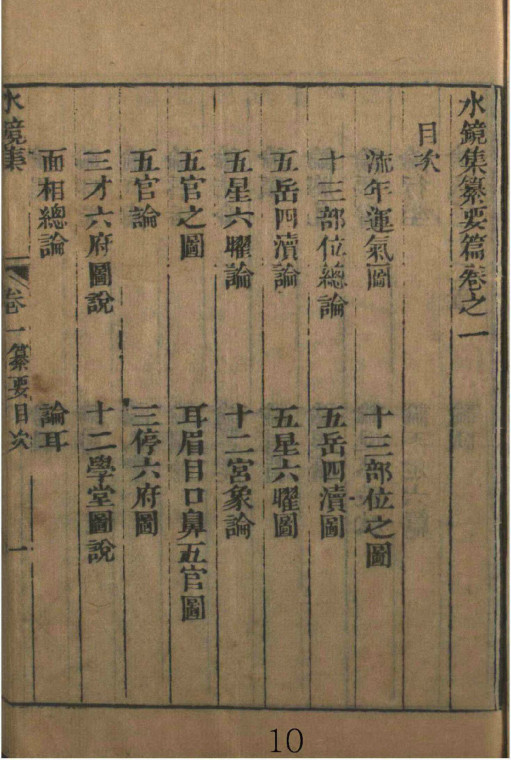 水鏡集纂要篇卷之一
目次
流年運氣圖　十三部位之圖
十三部位總論　五岳四瀆圖
五岳四瀆論　五星六曜圖
五星六曜論　十二宮象論
五官之圖　耳眉目口鼻五官圖
五官論　三停六府圖
三才六府圖說　十二學堂圖說
面相總論　論耳
水鏡集　卷一纂要目次　一
10